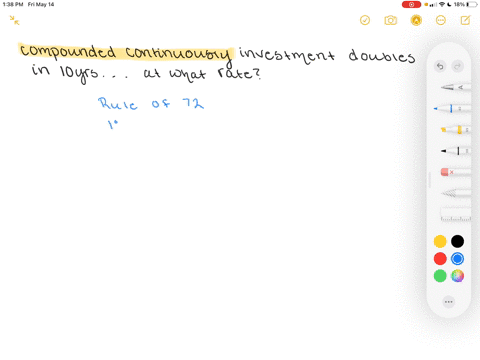 1:38 PM Fri May 14
18%
compounded continuously investment doubles
in 10yrs... at what rate?
Rule of 72